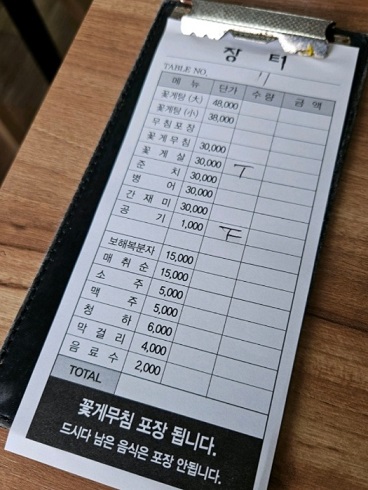 장 터
TABLE NO. 11
메 뉴 단가 수량 금액
꽃게탕 (大) 48,000
꽃게탕 (小) 38,000
무침포장
꽃게무침 30,000
꽃 게 살 30,000 T
준 치 30,000
병 어 30,000
간 재 미 30,000
공 기 1,000 F
보해복분자 15,000
매 취 순 15,000
소 주 5,000
맥 주 5,000
청 하 6,000
막 걸 리 4,000
음 료 수 2,000
TOTAL
꽃게무침 포장 됩니다.
드시다 남은 음식은 포장 안됩니다.